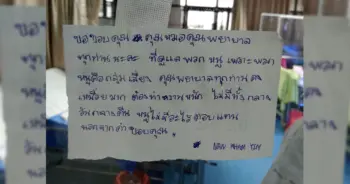 ขอขอบคุณ คุณหมอคุณพยาบาล
ทุกท่านนะคะ ที่ดูแลพวกหนู เพราะพวก
หนูคือกลุ่มเสี่ยง คุณพยาบาลทุกท่านคง
เหนื่อยมาก ต้องทำงานหนัก ไม่มีทั้งกลาง
วันกลางคืน หนูไม่มีอะไรตอบแทน
นอกจากคำขอบคุณ